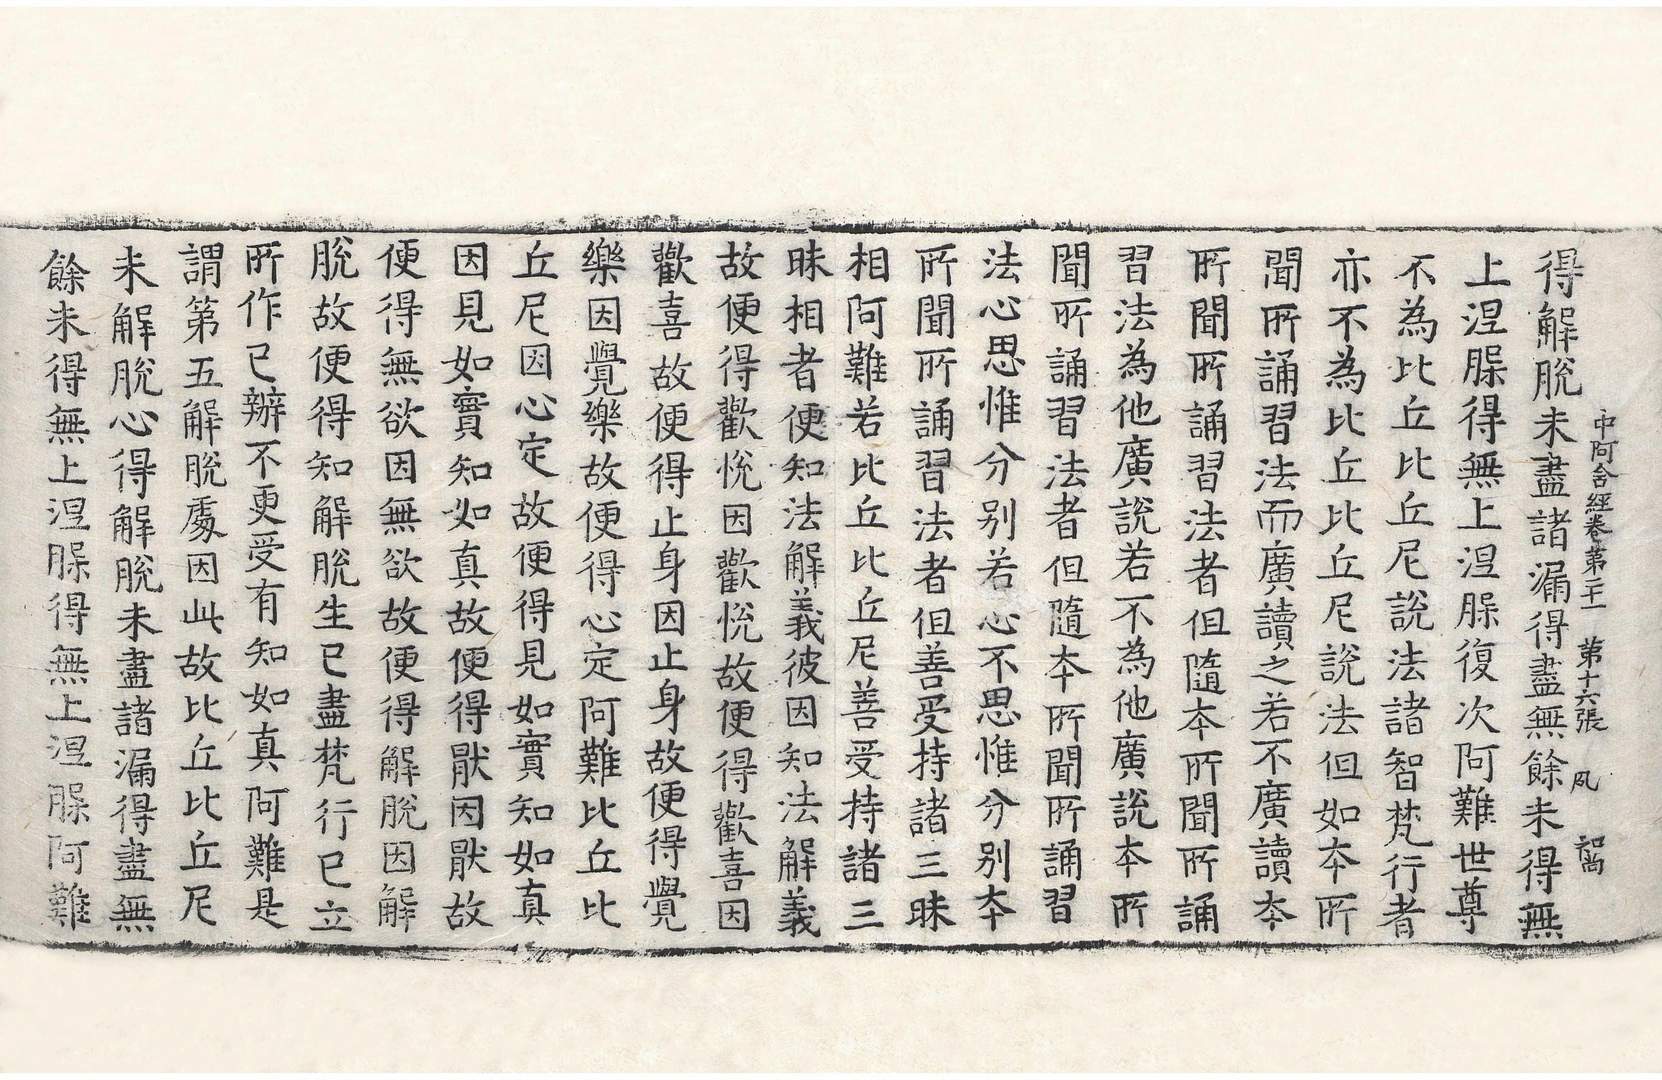 中阿含經卷第二十一 第十六張 夙
得解脫未盡諸漏得盡無餘未得無
上涅槃得無上涅槃復次阿難世尊
不為比丘比丘尼說法諸智梵行者
亦不為比丘比丘尼說法但如本所
聞所誦習法而廣讀之若不廣讀本
所聞所誦習法者但隨本所聞所誦
習法為他廣說若不為他廣說本所
聞所誦習法者但隨本所聞所誦習
法心思惟分別若心不思惟分別本
所聞所誦習法者但善受持諸三昧
相阿難若比丘比丘尼善受持諸三
昧相者便知法解義彼因知法解義
故便得歡悅因歡悅故便得歡喜因
歡喜故便得止身因止身故便得覺
樂因覺樂故便得心定阿難比丘比
丘尼因心定故便得見如實知如真
因見如實知如真故便得猒因猒故
便得無欲因無欲故便得解脫因解
脫故便得知解脫生已盡梵行已立
所作已辦不更受有知如真阿難是
謂第五解脫處因此故比丘比丘尼
未解脫心得解脫未盡諸漏得盡無
餘未得無上涅槃得無上涅槃阿難